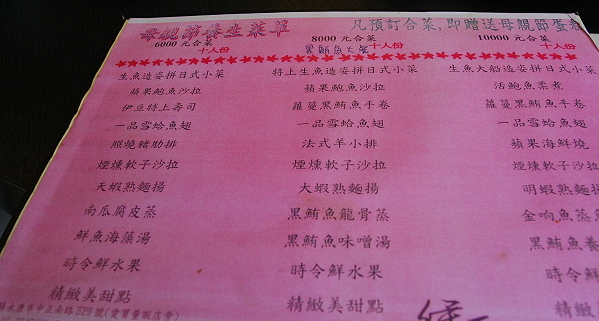 母親節養生菜單
凡預訂合菜,即贈送母親節蛋糕
6000 元合菜
十人份
8000 元合菜
黑鮪魚大餐 十人份
10000 元合菜
十人份
生魚造姿拼日式小菜
蘋果鮑魚沙拉
伊豆特上壽司
一品雪蛤魚翅
照燒豬肋排
煙燻軟子沙拉
天蝦熟麵揚
南瓜腐皮蒸
鮮魚海藻湯
時令鮮水果
精緻美甜點
特上生魚造姿拼日式小菜
蘋果鮑魚沙拉
蘿蔓黑鮪魚手卷
一品雪蛤魚翅
法式羊小排
煙燻軟子沙拉
大蝦熟麵揚
黑鮪魚龍骨蒸
黑鮪魚味噌湯
時令鮮水果
精緻美甜點
生魚大船造姿拼日式小菜
活鮑魚柔煮
蘿蔓黑鮪魚手卷
一品雪蛤魚翅
蘋果海鮮燒
煙燻軟子沙拉
明蝦熟麵
金响魚蒸
黑鮪魚養
時令鮮水
精緻美甜
永康市中正南路529號(愛買量販店旁)